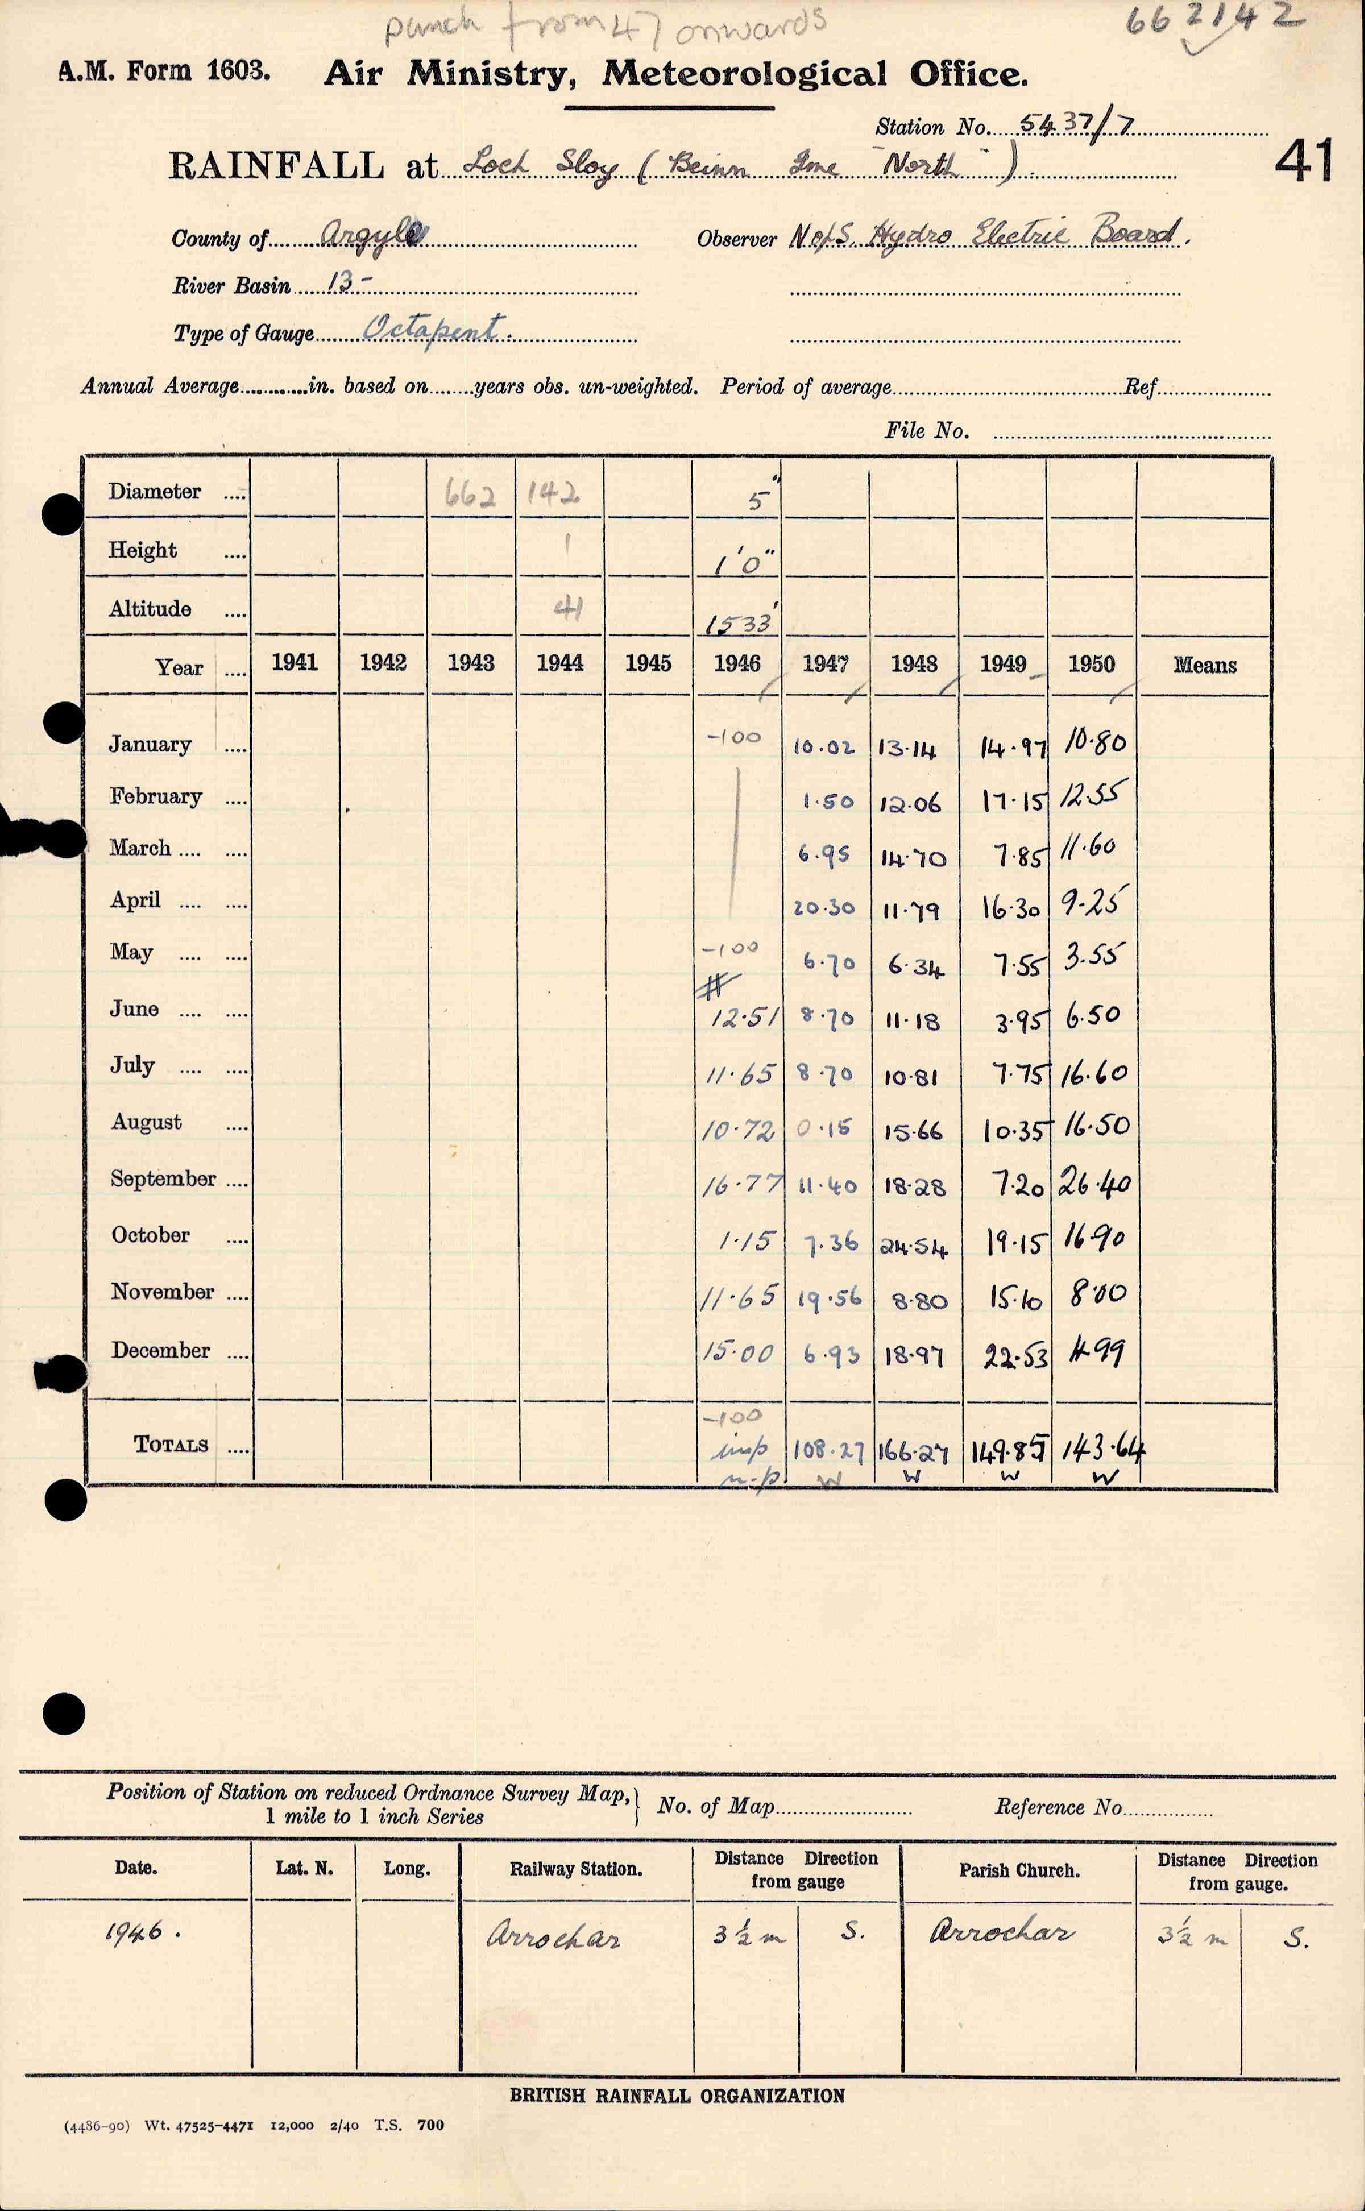 punch from 47 onwards
662142
A.M. Form 1603. Air Ministry, Meteorological Office.
Station No. 5437/7
RAINFALL at Loch Sloy (Beinn Ime "North") 41
County of Argyle Observer N of S. Hydro Electric Board.
River Basin 13-
Type of Gauge Octapent.
Annual Average in. based on years obs. un-weighted. Period of average Ref.
File No.
Diameter .... 662 142 5"
Height .... 1 1'0"
Altitude .... 41 1533'
Year .... 1941 1942 1943 1944 1945 1946 1947 1948 1949 1950 Means
January .... -100 10.02 13.14 14.97 10.80
February .... 1.50 12.06 17.15 12.55
March .... .... 6.95 14.70 7.85 11.60
April .... .... 20.30 11.79 16.30 9.25
May .... .... -100 6.70 6.34 7.55 3.55
June .... .... # 12.51 8.70 11.18 3.95 6.50
July .... .... 11.65 8.70 10.81 7.75 16.60
August .... 10.72 0.15 15.66 10.35 16.50
September .... 16.77 11.40 18.28 7.20 26.40
October .... 1.15 7.36 24.54 19.15 16.90
November .... 11.65 19.56 8.80 15.10 8.00
December .... 15.00 6.93 18.97 22.53 4.99
-100
TOTALS .... imp 108.27 166.27 149.85 143.64
n.p. w w w w
Position of Station on reduced Ordnance Survey Map, 1 mile to 1 inch Series } No. of Map Reference No.
Date. Lat. N. Long. Railway Station. Distance Direction from gauge Parish Church. Distance Direction from gauge.
1946. Arrochar 3½ m S. Arrochar 3½ m S.
BRITISH RAINFALL ORGANIZATION
(4486-90) Wt. 47525-4471 12,000 2/40 T.S. 700